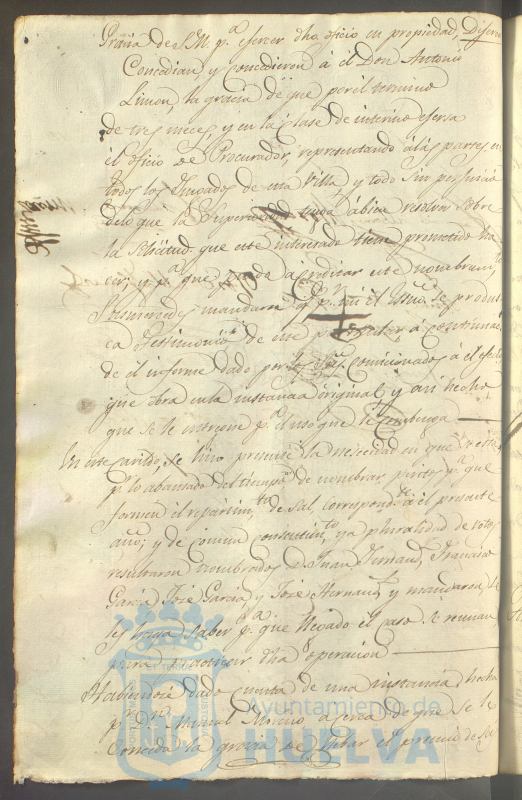 Gracia de S.M. p.ª ejercer dho. oficio en propiedad,
Concedian y concedieron á él Don Antonio
Limon, la gracia de que por él termino
de tres meces y en la clase de interino ejersa
él oficio de Procurador, representando á las partes en
todos los Jusgados de esta Villa, y todo sin perjuicio
delo que la Superioridad tenga á bien resolver sobre
la solicitud que este interesado tiene prometido ha
cer; y p.ª que pueda acreditar este nombram.to
Sus mercedes mandaron q.e p.r mi él Essno. se produs
ca testimonio de este particular, á continuac.n
de él informe dado por los Sres. comicionados á él efecto
que obra en la instancia original, y asi hecho
que se le entregue p.ª el uso que le combenga
En este cavildo se hiso presente la nececidad en que se está
p.r lo abansado del tiempo de nombrar peritos p.ª que
formen el repartim.to de Sal, correspond.te á él presente
año; y de comun consentim.to y á pluralidad de votos
resultaron nombrados D. Juan Fernand.z
Garcia José Garcia y José Hernand.z y mandaron se
les haga saber p.ª que llegado el caso se reunan
para practicar dha operacion
Habiendose dado cuenta de una instancia hecha
p.r D.n Manuel Moreno acerca de que se le
Conceda la gracia de el precio de
Ayuntamiento de
HUELVA